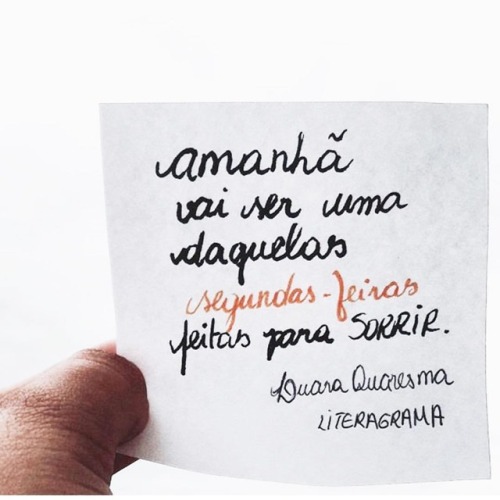 amanhã
vai ser uma
daquelas
segundas-feiras
feitas para SORRIR.
Luara Quaresma
LITERAGRAMA